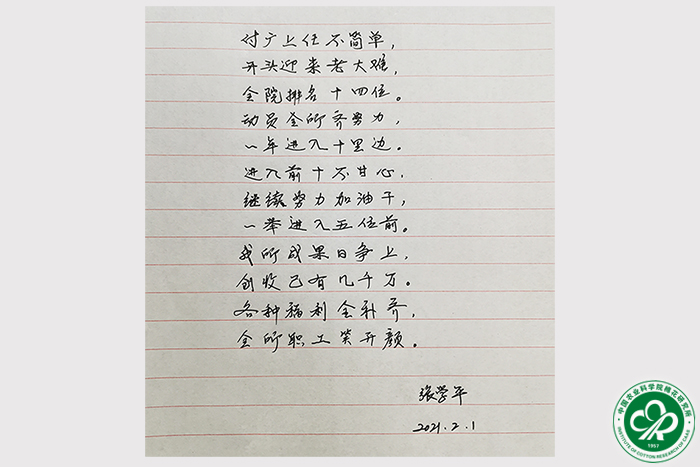 付广上任不简单，
开头迎来老大难，
全院排名十四位。
动员全所齐努力，
一年进入十里边。
进入前十不甘心，
继续努力加油干，
一举进入五位前。
我所成果日争上，
创收已有几千万。
各种福利全补齐，
全所职工笑开颜。
张学平
2021.2.1
中国农业科学院棉花研究所
1957
INSTITUTE OF COTTON RESEARCH OF CAAS